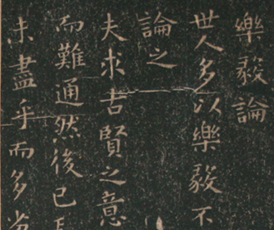 樂毅論
世人多以樂毅不
論之
夫求古賢之意
而難通然後已
未盡乎而多劣